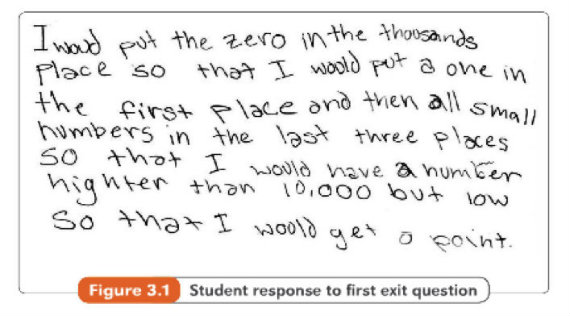 I woud put the zero in the thousands
place so that I would put a one in
the first place and then all small
numbers in the last three places
so that I would have a number
highter than 10,000 but low
so that I would get a point.
Figure 3.1 Student response to first exit question